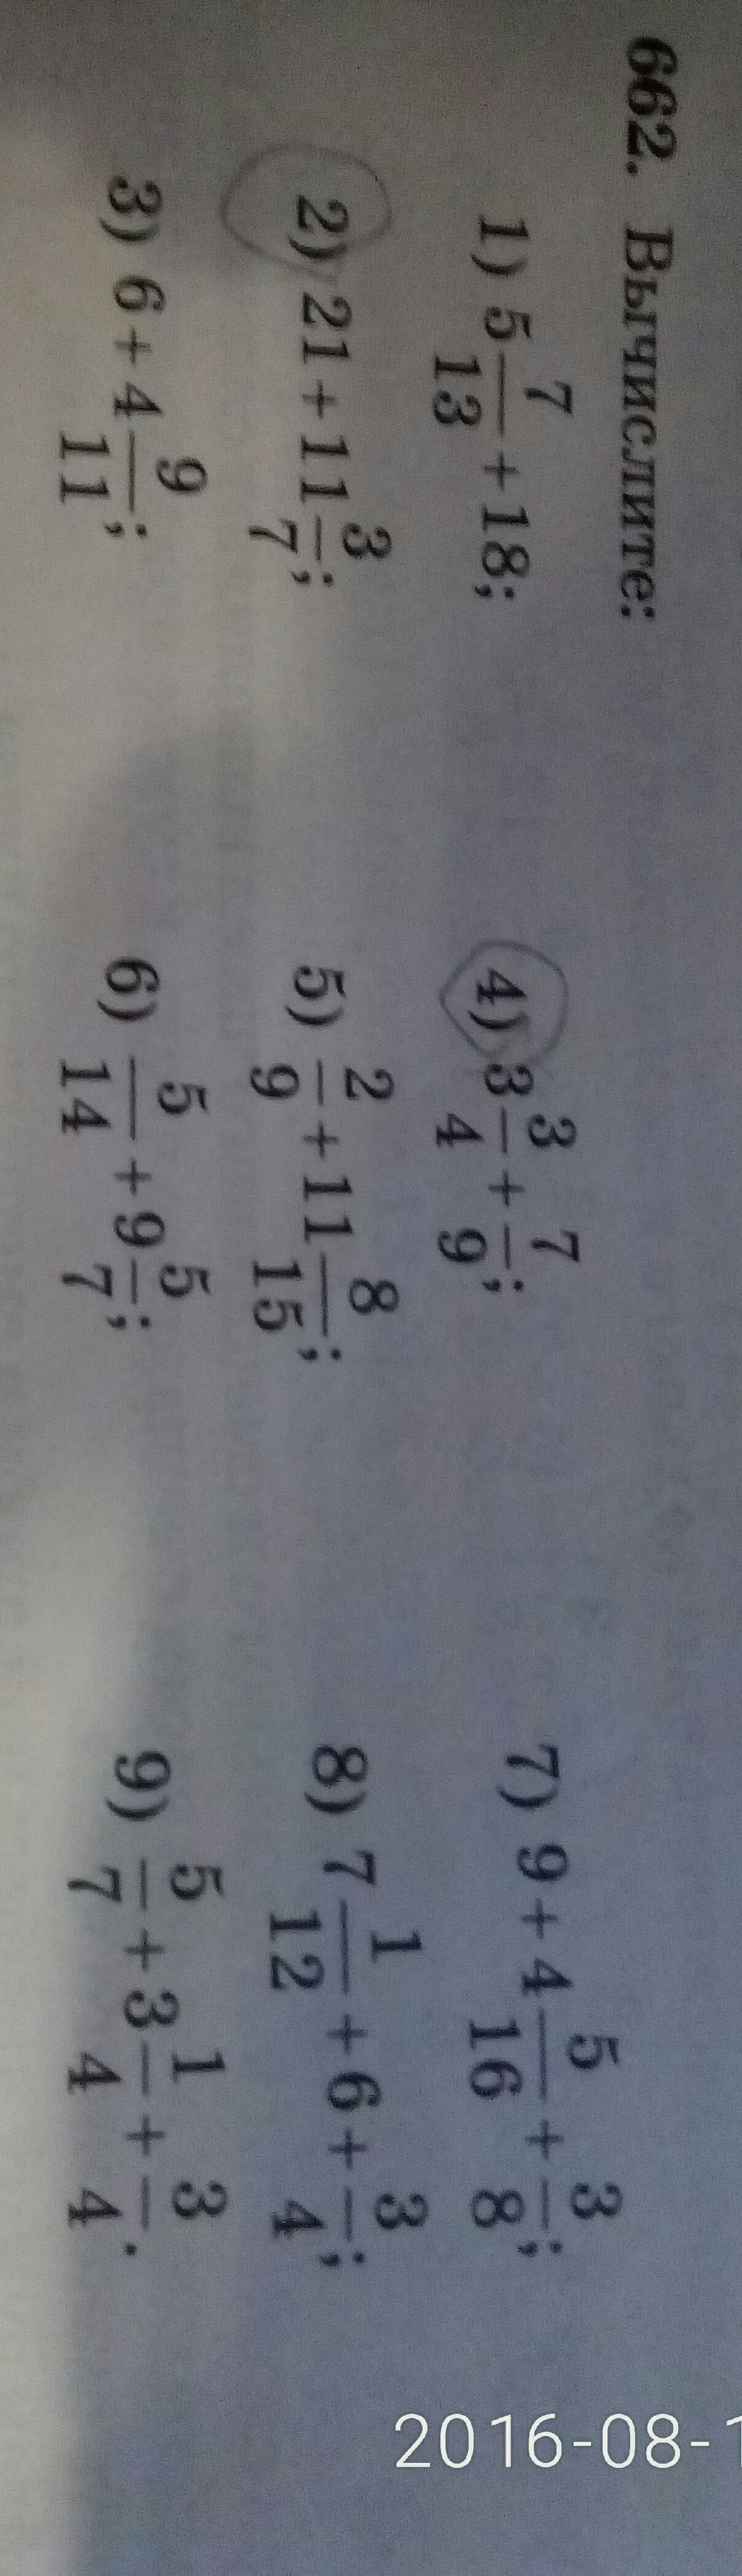 662. Вычислите:
1) 5 7/13 + 18;
2) 21 + 11 3/7;
3) 6 + 4 9/11;
4) 3 3/4 + 7/9;
5) 2/9 + 11 8/15;
6) 5/14 + 9 5/7;
7) 9 + 4 5/16 + 3/8;
8) 7 1/12 + 6 + 3/4;
9) 5/7 + 3 1/4 + 3/4.
2016-08-1